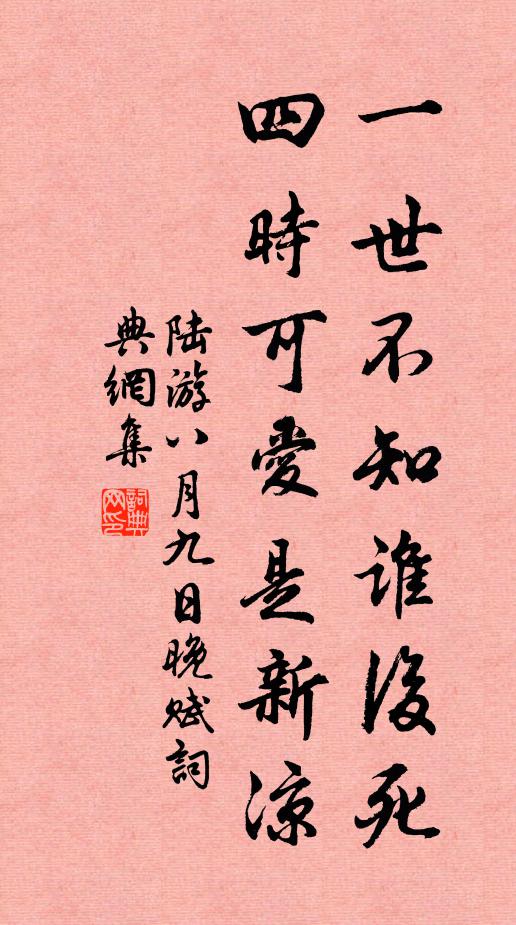 一世不知誰後死
四時可愛是新涼
陆游八月九日晚赋詞
典網集
詞典網印